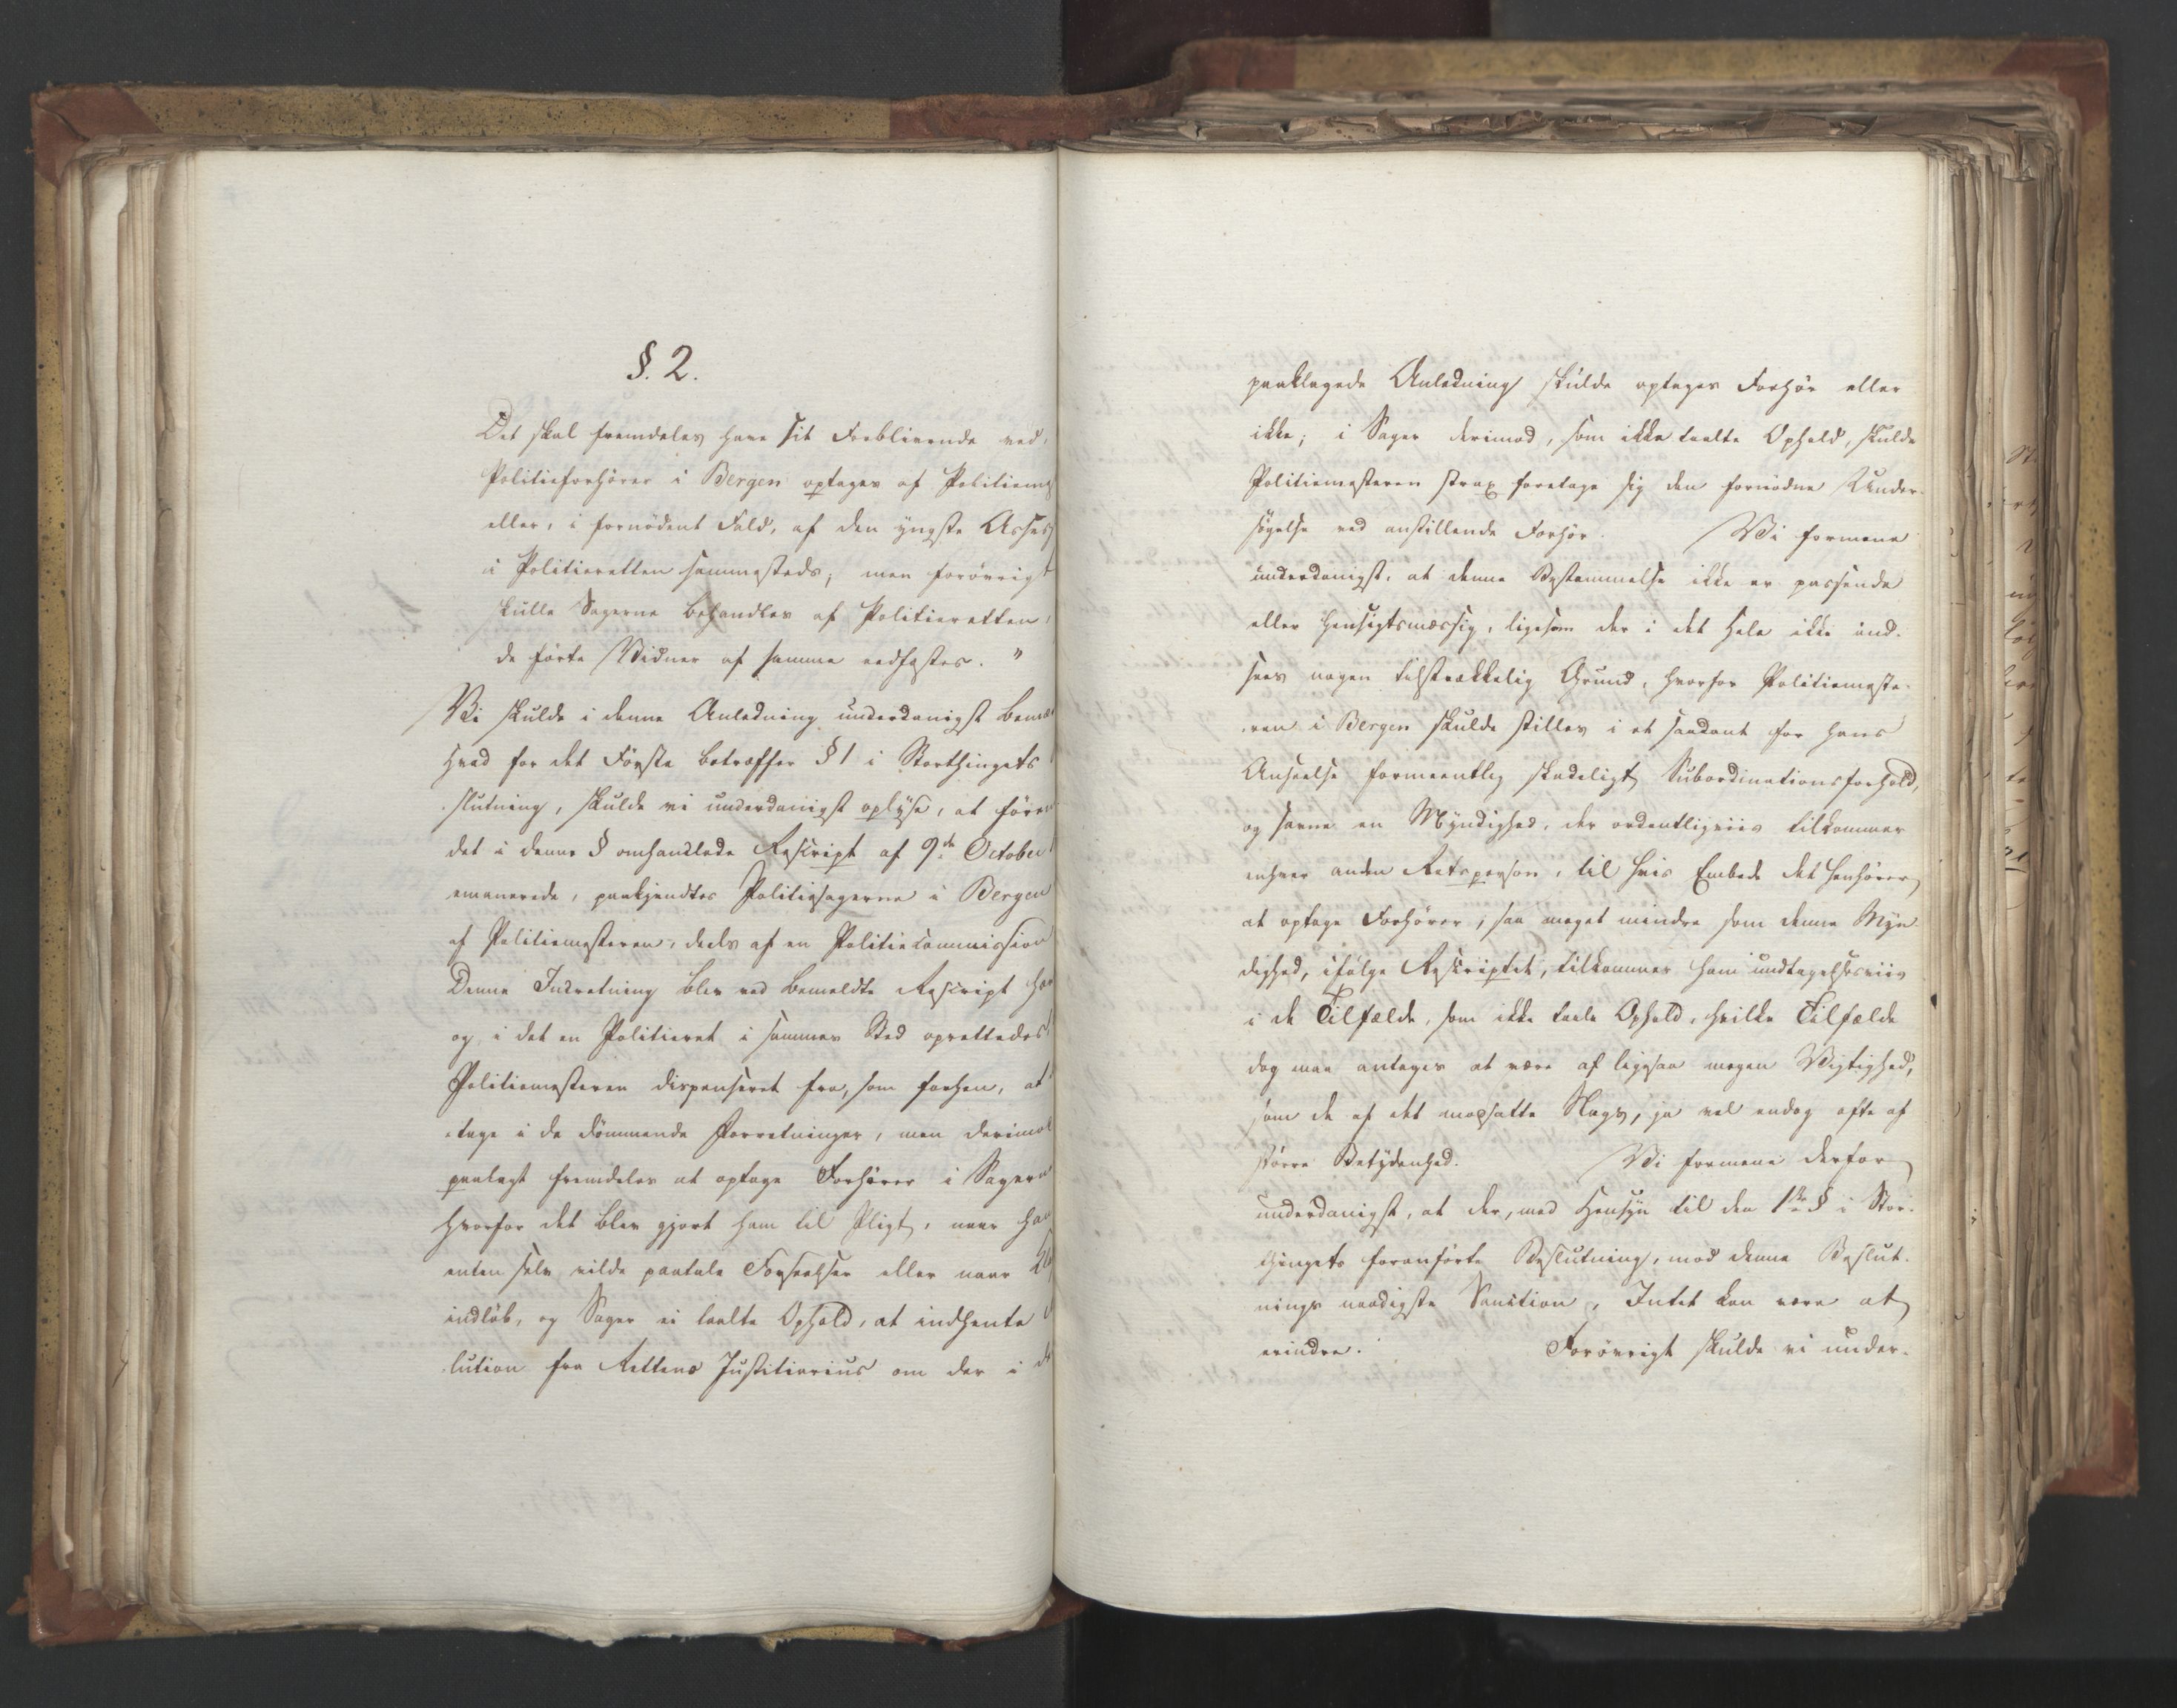 §. 2.
Det skal fremdeles have sit Forblivende ved,
Politieforhører i Bergen optages af Politieme
eller, i fornødent Fald, af den yngste Assess
i Politieretten sammesteds; men forøvrigt
skulle Sagerne behandles af Politieretten,
de førte Vidner af samme edfæstes. "
Vi skulde i denne Anledning underdanigst bemæ
Hvad for det Første betræffer § 1 i Storthingets
slutning, skulde vi underdanigst oplyse, at føren
det i denne § omhandlede Rescript af 9de October
emanerede, paakjendtes Politiesagerne i Bergen
af Politiemesteren, deels af en Politiecommission
Denne Indretning blev ved bemeldte Rescript hæ
og, i det en Politieret i sammes Sted oprettedes
Politiemesteren dispenseret fra, som forhen, at
tage i de dømmende Forretninger, men derimod
paalagt fremdeles at optage Forhører i Sagern
hvorfor det blev gjort ham til Pligt, naar han
enten selv vilde paatale Forseelser eller naar Kla
indløb, og Sager ei taalte Ophold, at indhente
lution fra Rettens Justitiarius om der i d
paaklagede Anledning skulde optages Forhør eller
ikke; i Sager derimod, som ikke taalte Ophold, skulde
Politiemesteren strax foretage sig den fornødne Under-
søgelse ved anstillende Forhør. Vi formene
underdanigst, at denne Bestemmelse ikke er passende
eller hensigtsmæssig, ligesom der i det Hele ikke ind-
sees nogen tilstrækkelig Grund, hvorfor Politiemeste-
ren i Bergen skulde stilles i et saadant for hans
Anseelse formeentlig skadeligt Subordinationsforhold,
og savne en Myndighed, der ordentligviis tilkommer
enhver anden Retsperson, til hvis Embede det henhører
at optage Forhører, saa meget mindre som denne Myn-
dighed, ifølge Rescriptet, tilkommer ham undtagelsesviis
i de Tilfælde, som ikke taale Ophold, hvilke Tilfælde
dog maa antages at være af ligesaa megen Vigtighed,
som de af det modsatte Slags, ja vel endog ofte af
større Betydenhed. Vi formene derfor
underdanigst, at der, med Hensyn til den 1ste § i Stor-
thingets foranførte Beslutning, mod denne Beslut-
nings naadigste Sanction, Intet kan være at
erindre. Forøvrigt skulde vi under-